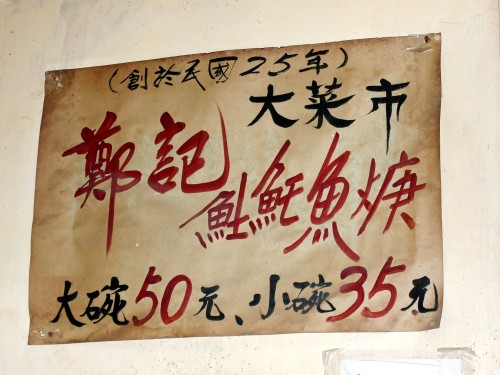 (創於民國25年)
大菜市
鄭記
魠魠魚焿
大碗50元、小碗35元